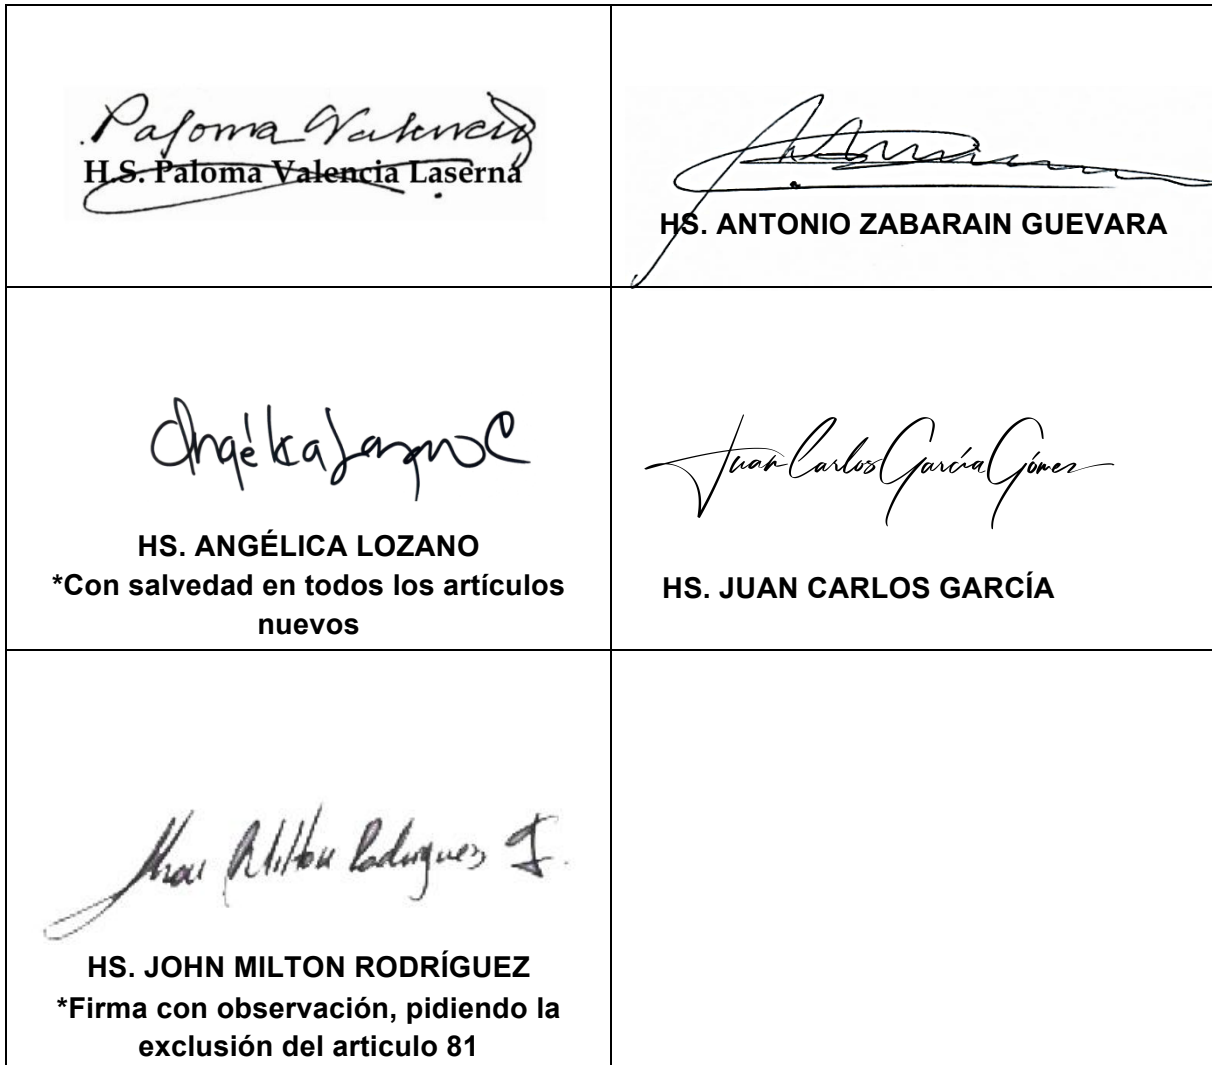 Paloma Valencia
H.S. Paloma Valencia Laserna
HS. ANTONIO ZABARAIN GUEVARA
Angélica Lozano C
HS. ANGÉLICA LOZANO
*Con salvedad en todos los artículos
nuevos
Juan Carlos García Gómez
HS. JUAN CARLOS GARCÍA
Jhon Milton Rodríguez G.
HS. JOHN MILTON RODRÍGUEZ
*Firma con observación, pidiendo la
exclusión del articulo 81